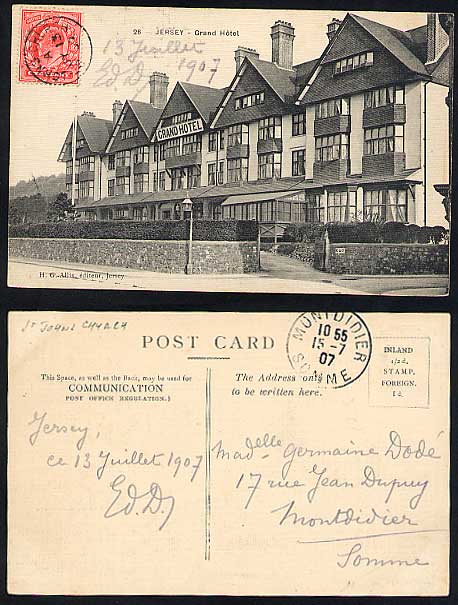 26 JERSEY - Grand Hôtel
13 Juillet
Ed.D. 1907
GRAND HOTEL
H. G. Allix, éditeur, Jersey
St JOHNS CHURCH
POST CARD
MONTDIDIER
10 55
15 -7
07
SOMME
INLAND
1/2d.
STAMP.
FOREIGN.
1d.
This Space, as well as the Back, may be used for
COMMUNICATION
POST OFFICE REGULATION.)
The Address only
to be written here.
Jersey,
ce 13 Juillet 1907
Ed.D.
Madelle Germaine Dodé
17 rue Jean Dupuy
Montdidier
Somme